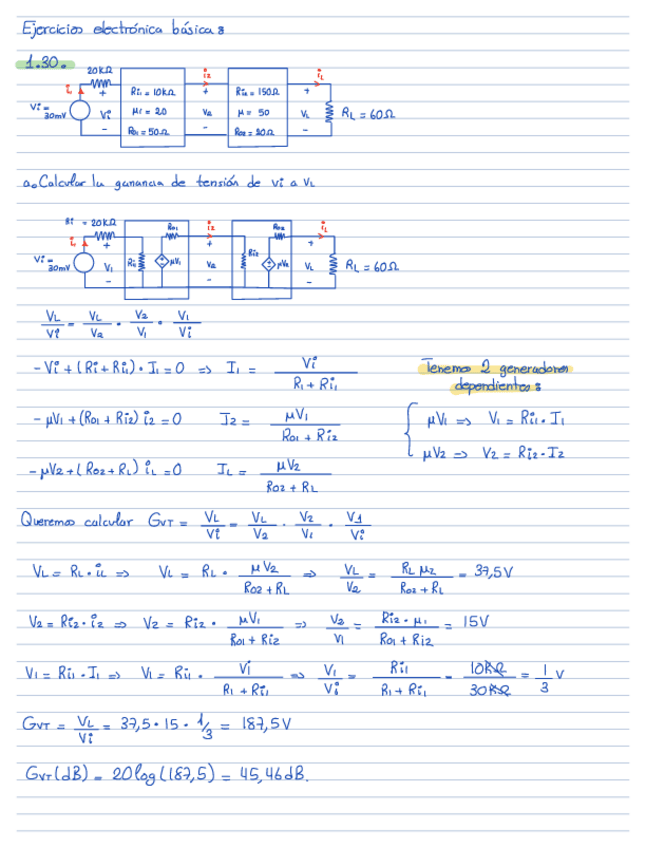 Ejercicios electrónica básica:
1.30.
20KΩ
i₁
i₂
iL
Vi = 30mV
+ Vi -
Ri₁ = 10KΩ
μ₁ = 20
Ro₁ = 50Ω
+ V₂ -
Ri₂ = 150Ω
μ = 50
Ro₂ = 20Ω
+ VL -
RL = 60Ω
a. Calcular la ganancia de tensión de Vi a VL
Ri = 20KΩ
i₁
i₂
iL
Vi = 30mV
+ V₁ -
Ri₁
Ro₁
μV₁
+ V₂ -
Ri₂
Ro₂
μV₂
+ VL -
RL = 60Ω
VL/Vi = VL/V₂ · V₂/V₁ · V₁/Vi
-Vi + (Ri + Ri₁) · I₁ = 0 => I₁ = Vi/(R₁ + Ri₁)
Tenemos 2 generadores
dependientes:
-μV₁ + (Ro₁ + Ri₂) i₂ = 0 I₂ = μV₁/(Ro₁ + Ri₂)
μV₁ => V₁ = Ri₁ · I₁
μV₂ => V₂ = Ri₂ · I₂
-μV₂ + (Ro₂ + RL) iL = 0 IL = μV₂/(Ro₂ + RL)
Queremos calcular GVT = VL/Vi = VL/V₂ · V₂/V₁ · V₁/Vi
VL = RL · iL => VL = RL · μV₂/(Ro₂ + RL) => VL/V₂ = RL μ₂/(Ro₂ + RL) = 37,5V
V₂ = Ri₂ · i₂ => V₂ = Ri₂ · μV₁/(Ro₁ + Ri₂) => V₂/V₁ = Ri₂ · μ₁/(Ro₁ + Ri₂) = 15V
V₁ = Ri₁ · I₁ => V₁ = Ri₁ · Vi/(R₁ + Ri₁) => V₁/Vi = Ri₁/(R₁ + Ri₁) = 10KΩ/30KΩ = 1/3 V
GVT = VL/Vi = 37,5 · 15 · 1/3 = 187,5V
GVT(dB) = 20log(187,5) = 45,46dB.